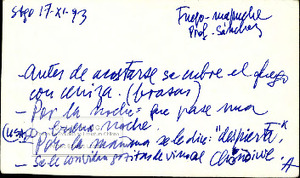 Stgo 17-XI-93
Fuego-mapuche
Prof. Sánchez
- Antes de acostarse se cubre el fuego
con ceniza. (brasas)
- Por la noche: que pase una
buena noche.
- Por la mañana se le dice: "despierta".
- Se le convidan gotitas de vino al